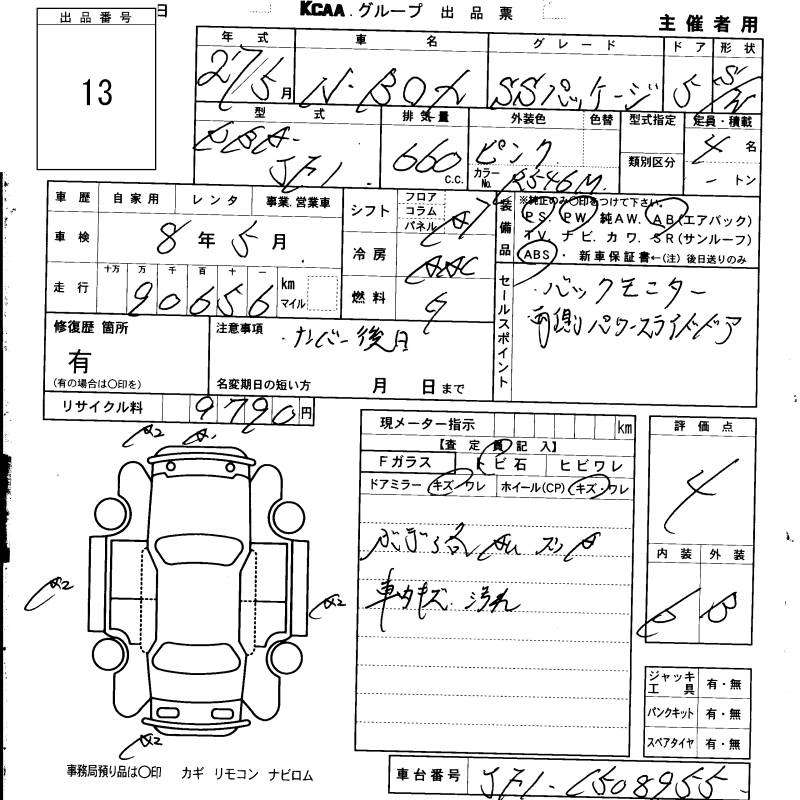 日 KCAA グループ 出品票
主催者用
出品番号
13
年式 車名 グレード ドア 形状
27/5月 N-BOX SSパッケージ 5 S/W
型式 排気量 外装色 色替 型式指定 定員・積載
DBA-JF1 660 c.c. ピンク 類別区分 4名
カラーNo. R546M -トン
車歴 自家用 レンタ 事業.営業車
車検 8年5月
走行 十万 万 千 百 十 一
90656 km マイル
シフト フロア コラム パネル AT
冷房 AAC
燃料 G
装備品 ※純正のみ〇印をつけて下さい。
PS. PW. 純AW. AB(エアバック)
TV. ナビ. カワ. SR(サンルーフ)
ABS・ 新車保証書←(注)後日送りのみ
セールスポイント
・バックモニター
両側パワースライドドア
修復歴 箇所
有
(有の場合は〇印を)
注意事項
・ナンバー後日
名変期日の短い方 月 日まで
リサイクル料 9790円
現メーター指示 km
【査定員記入】
Fガラス トビ石 ヒビワレ
ドアミラー キズ・ワレ ホイール(CP) キズ・ワレ
車内キズ. 汚れ
評価点
4
内装 外装
B B
A2 A1
A2 A2
A2
ジャッキ工具 有・無
パンクキット 有・無
スペアタイヤ 有・無
事務局預り品は〇印 カギ リモコン ナビロム
車台番号 JF1-1508955